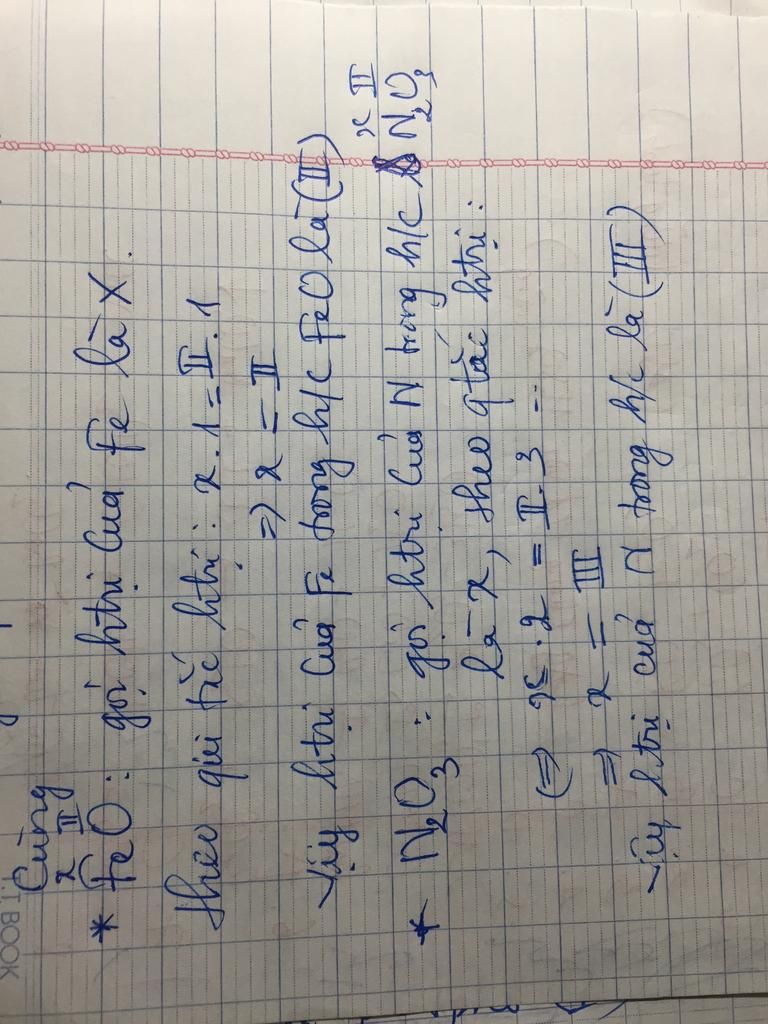 T.T BOOK
Cứng
x II
* FeO: gọi htrị của Fe là X.
theo qui tắc htrị: x.1 = II.1
=> x = II
Vậy htrị của Fe trong h/c FeO là (II)
x II
* N2O3: gọi htrị của N trong h/c N2O3
là x, theo qtắc htrị:
(=> x.2 = II.3
=> x = III
Vậy htrị của N trong h/c là (III)